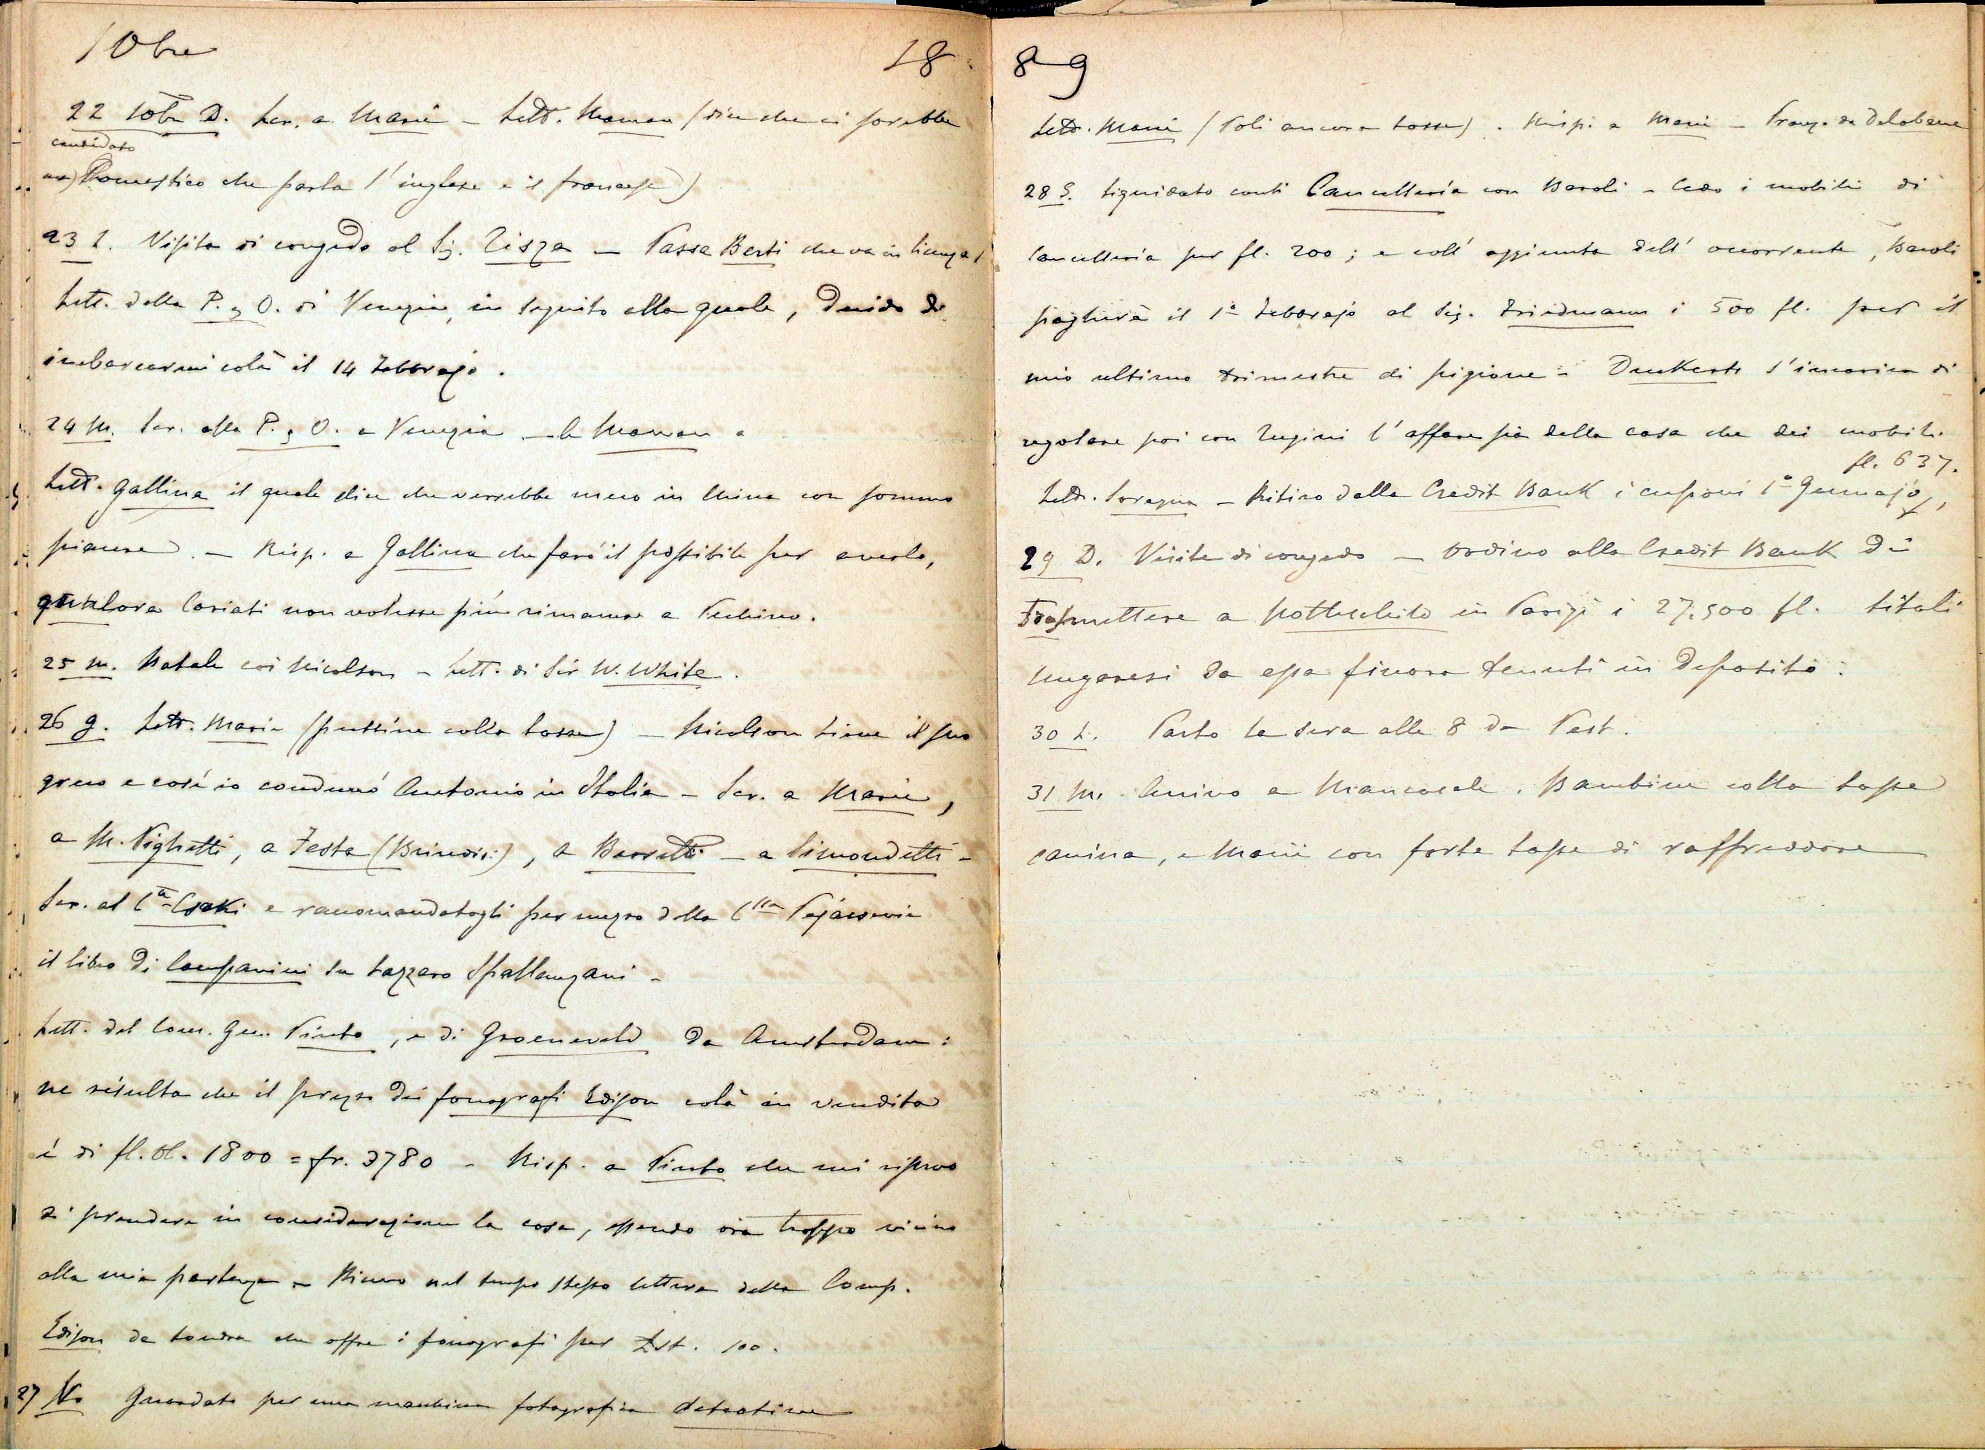 10bre 18
22 10bre D. Scr. a Marie - Lett. Maman (dice che ci sarebbe
candidato
un) Domestico che parla l'inglese e il francese)
23 L. Visita di congedo al Sig. Tisza - Passa Berti che va in licenza
Lett. della P. & O. di Venezia, in seguito alla quale, decido di
imbarcarmi colà il 14 Febbrajo.
24 M. Scr. alla P. & O. a Venezia - a Maman
Lett. Gallina il quale dice che verrebbe meco in China con sommo
piacere - Risp. a Gallina che farò il possibile per averlo,
qualora Cariati non volesse più rimanere a Pechino.
25 M. Natale coi Nicolson - Lett. di Sir W. White.
26 G. Lett. Marie (puttine colla tosse) - Nicolson tiene il suo
greco e così io condurrò Antonio in Italia - Scr. a Marie,
a M. Vighetti, a Testa (Brindisi), a Barretti - a Simondetti -
Scr. al Cte Csaki e raccomandatogli per mezzo della Ctssa Pejácsevic
il libro di Campanini su Lazzaro Spallanzani -
Lett. del Con. Gen. Pinto, e di Groeneveld da Amsterdam:
ne risulta che il prezzo dei fonografi Edison colà in vendita
è di fl. ol. 1800 = fr. 3780 - Risp. a Pinto che mi riservo
di prendere in considerazione la cosa, essendo ora troppo vicino
alla mia partenza - Ricevo nel tempo stesso lettera della Comp.
Edison da Londra che offre i fonografi per Lst. 100.
27 V. Guardato per una macchina fotografica detective
89
Lett. Marie (Poli ancora tosse). Risp. a Marie - Pranzo da Delabene
28 S. Liquidato conti Cancelleria con Baroli - Cedo i mobili di
Cancelleria per fl. 200; e coll' aggiunta dell' occorrente, Baroli
pagherà il 1º Febbrajo al Sig. Friedmann i 500 fl. per il
mio ultimo trimestre di pigione - Dunkerts s'incarica di
regolare poi con Zugini l'affare sia della casa che dei mobili.
fl. 637.
Lett. Soragna - Ritiro dalla Credit Bank i cuponi 1º Gennajo,
29 D. Visite di congedo - Ordino alla Credit Bank di
trasmettere a Rothschild in Parigi i 27.500 fl. titoli
ungaresi da essa finora tenuti in deposito.
30 L. Parto la sera alle 8 da Pest.
31 M. Arrivo a Mancasale. Bambine colla tosse
canina, e Marie con forte tosse di raffreddore